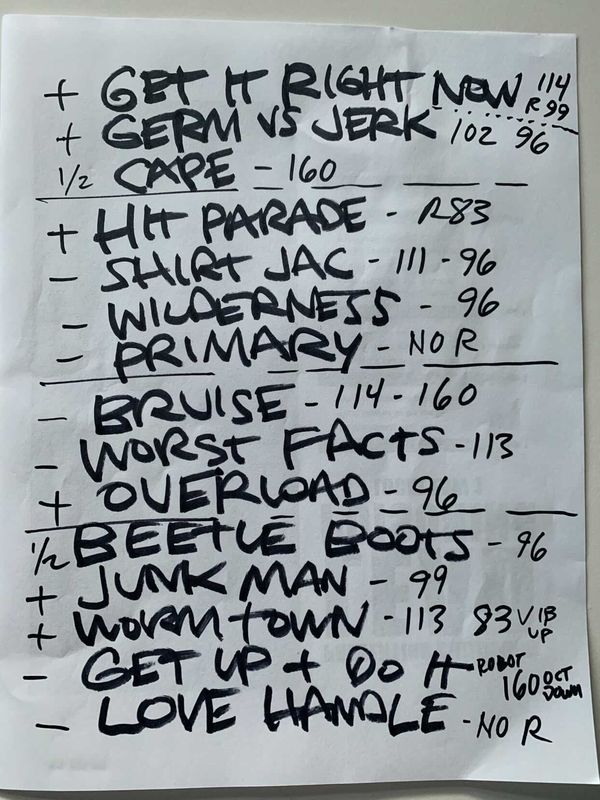 + GET IT RIGHT NOW 114 R 99
+ GERM VS JERK 102 96
1/2 CAPE - 160
+ HIT PARADE - R83
- SHIRT JAC - 111 - 96
- WILDERNESS - 96
- PRIMARY - NO R
- BRUISE - 114 - 160
- WORST FACTS - 113
+ OVERLOAD - 96
1/2 BEETLE BOOTS - 96
+ JUNK MAN - 99
+ WORM TOWN - 113 83 VIB UP
- GET UP + DO IT ROBOT 160 OCT DOWN
- LOVE HANDLE - NO R